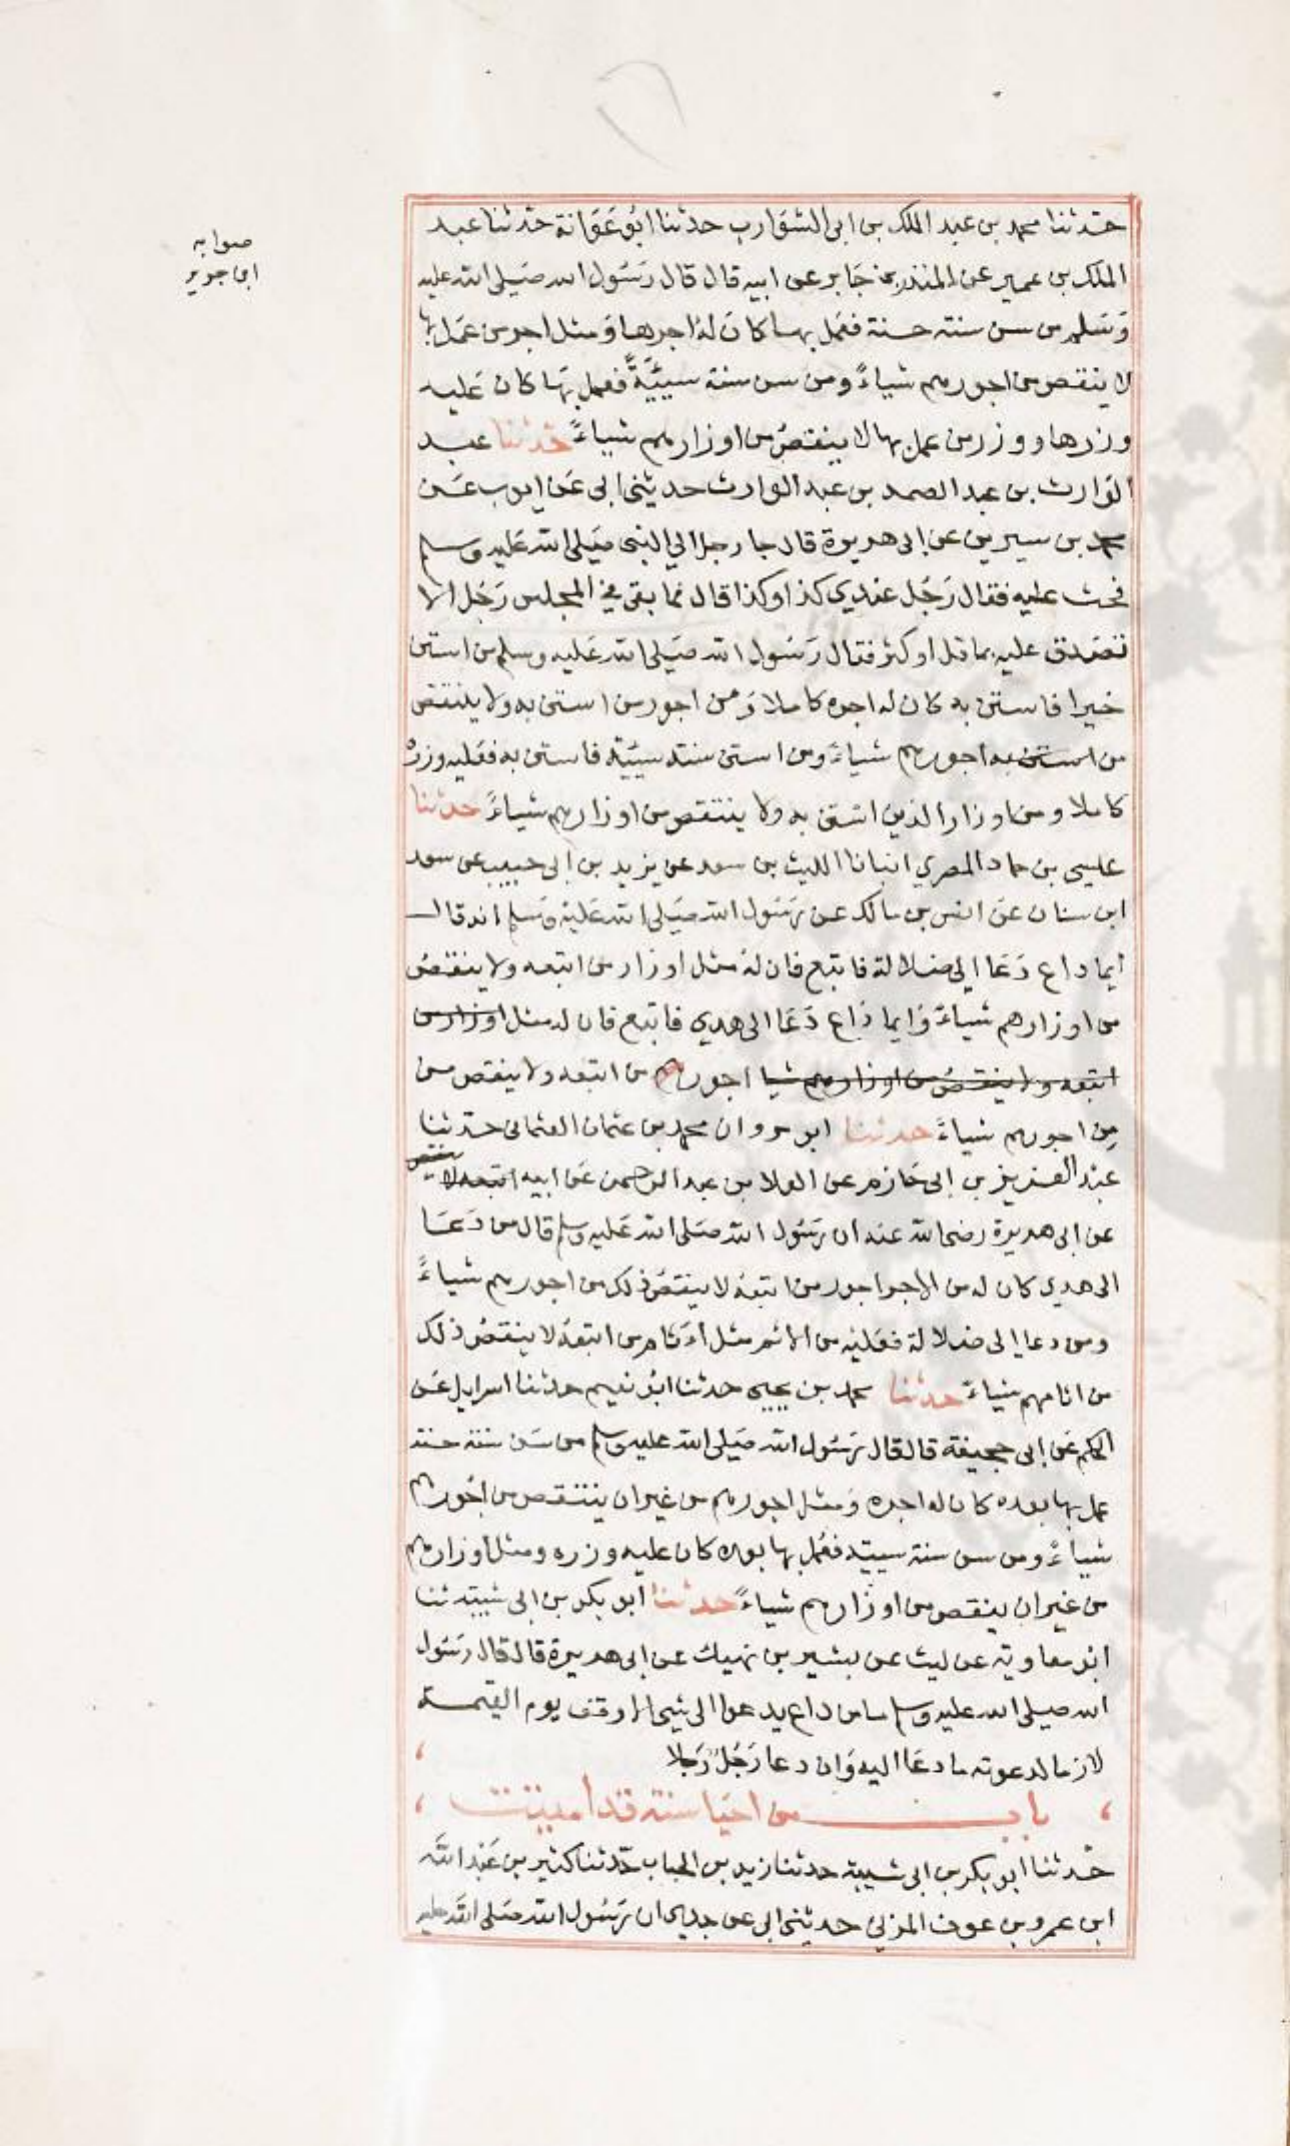 صوابه
ابن جرير
حدثنا محمد بن عبد الملك بن ابى الشوارب حدثنا ابو عوانة حدثنا عبد
الملك بن عمير عن المنذر بن جابر عن ابيه قال قال رسول الله صلى الله عليه
وسلم من سن سنته حسنة فعمل بها كان له اجرها ومثل اجر من عمل بها
لا ينقص من اجورهم شياءً ومن سن سنة سيئيةً فعمل بها كان عليه
وزرها ووزر من عمل بها لا ينقص من اوزارهم شياءً حدثنا عبد
الوارث بن عبد الصمد بن عبد الوارث حدثنى ابى عن ايوب عن
محمد بن سيرين عن ابى هريرة قال جا رجل الى النبى صلى الله عليه وسلم
فحث عليه فقال رجل عندي كذا وكذا قال فما بقى في المجلس رجل الا
تصدق عليه بما قل او كثر فقال رسول الله صلى الله عليه وسلم من استن
خيرا فاستن به كان له اجره كاملا ومن اجور من استن به ولا ينتقص
من استن به اجورهم شياءً ومن استن سنته سيئة فاستن به فعليه وزره
كاملا ومن اوزار الذين استن به ولا ينتقص من اوزارهم شياءً حدثنا
عيسى بن حماد المصري انبانا الليث بن سعد عن يزيد بن ابى حبيب عن سعد
ابن سنان عن انس بن مالك عن رسول الله صلى الله عليه وسلم انه قال
ايما داع دعا الى ضلالة فاتبع فان له مثل اوزار من اتبعه ولا ينقص
من اوزارهم شياءً وايما داع دعا الى هدي فاتبع فان له مثل اوزار من
اتبعه ولا ينقص من اوزارهم شيا اجورهم من اتبعه ولا ينقص من
من اجورهم شياءً حدثنا ابو مروان محمد بن عثمان العثمانى حدثنا
عبد العزيز بن ابى حازم عن العلا بن عبد الرحمن عن ابيه اتبعه لا ينقص
عن ابى هريرة رضى الله عنه ان رسول الله صلى الله عليه وسلم قال من دعا
الى هدي كان له من الاجر اجور من اتبعه لا ينقص ذلك من اجورهم شياءً
ومن دعا الى ضلالة فعليه من الاثم مثل اثام من اتبعه لا ينقص ذلك
من اثامهم شياءً حدثنا محمد بن يحيى حدثنا ابو نعيم حدثنا اسرايل عن
الحكم عن ابى جحيفة قال قال رسول الله صلى الله عليه وسلم من سن سنة حسنة
عمل بها بعده كان له اجره ومثل اجورهم من غير ان ينتقص من اجورهم
شياءً ومن سن سنة سيية فعمل بها بعده كان عليه وزره ومثل اوزارهم
من غير ان ينقص من اوزارهم شياءً حدثنا ابو بكر بن ابى شيبة ثنا
ابو معاوية عن ليث عن بشير بن نهيك عن ابى هريرة قال قال رسول
الله صلى الله عليه وسلم ما من داع يدعوا الى شى الا وقف يوم القيمة
لازما لدعوته ما دعا اليه وان دعا رجل رجلا
باب من احيا سنة قد اميتت
حدثنا ابو بكر بن ابى شيبة حدثنا زيد بن الحباب حدثنا كثير بن عبد الله
ابن عمرو بن عوف المزني حدثنى ابى عن جدي ان رسول الله صلى الله عليه